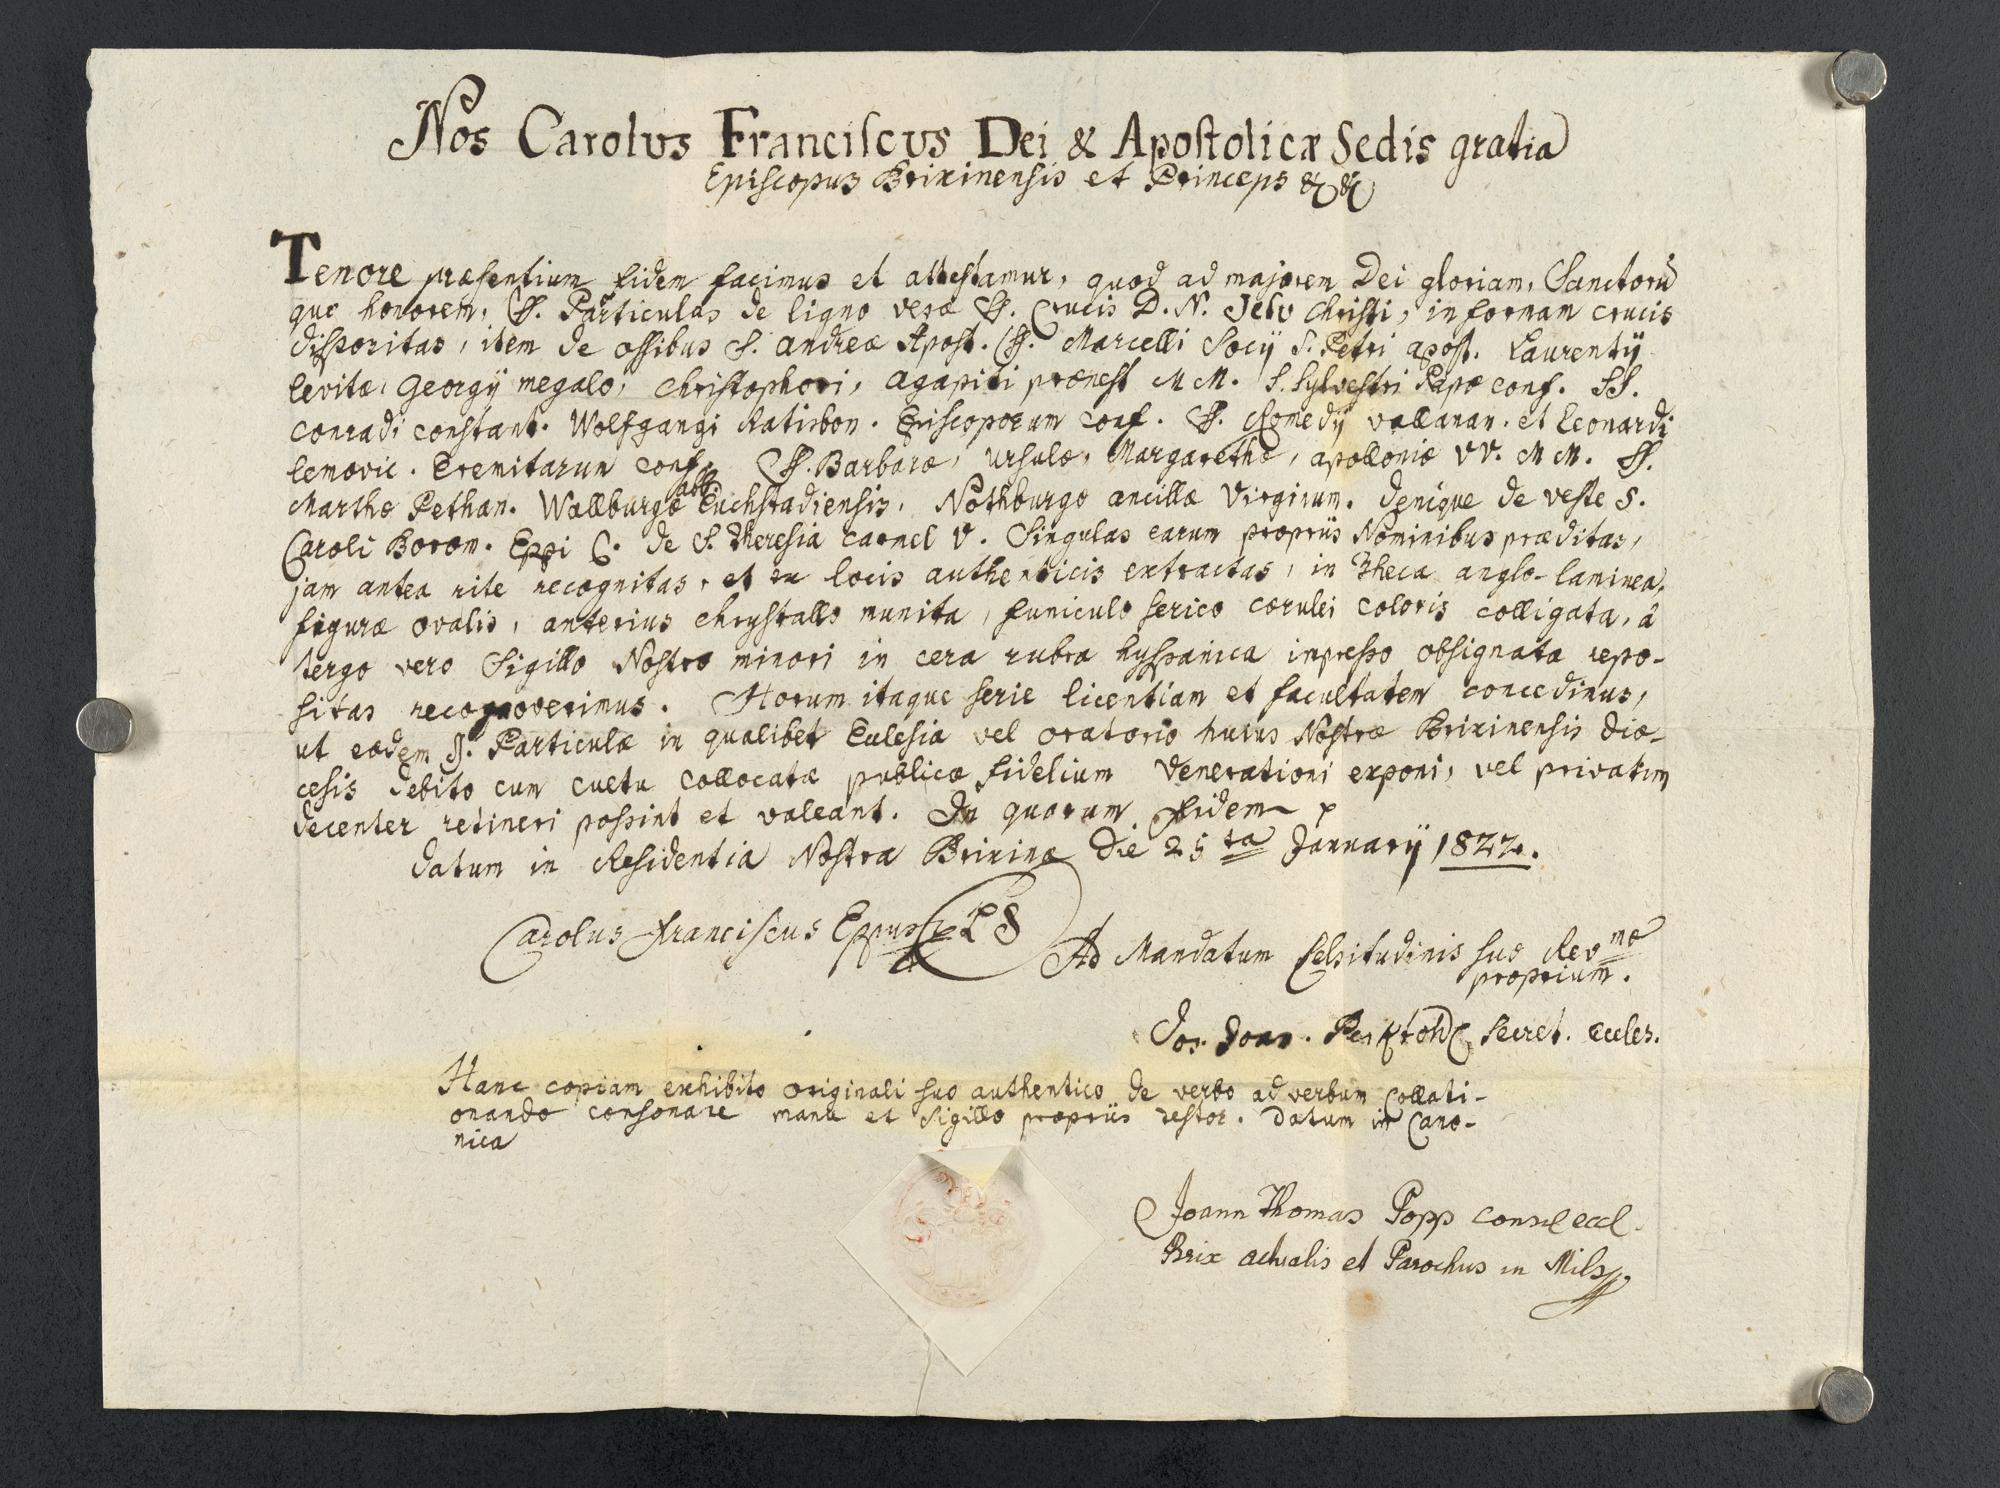 Nos Carolus Franciscus Dei & Apostolicæ Sedis gratia
Episcopus Brixinensis et Princeps &c &c
Tenore præsentium fidem facimus et attestamur, quod ad majorem Dei gloriam, Sanctorū
que honorem, SS. Particulas de ligno veræ SS. Crucis D. N. Jesu Christi, in formam crucis
dispositas, item de ossibus S. Andreæ Apost. SS. Marcelli Socij S. Petri apost. Laurentij
levitæ, Georgij megalo, Christophori, Agapiti prænest M M. S. Sylvestri Papæ conf. SS.
Conradi constant. Wolfgangi Ratisbon. Episcoporum conf. SS. Romedij vallanan. et Leonardi
lemovic. Eremitarum conf. SS. Barbaræ, Ursulæ, Margarethæ, apolloniæ VV. M M. SS.
Marthæ Pethan. Wallburgæ abb. Euchstadiensis, Nothburgæ ancillæ Virginum. denique de veste S.
Caroli Borom. Eppi C. de S. Theresia carmel V. Singulas earum propriis Nominibus præditas,
jam antea rite recognitas, et ex locis authenticis extractas, in Theca anglo-laminea,
figuræ ovalis, anterius chrystallo munita, funiculo serico cœrulei coloris colligata, à
tergo vero Sigillo Nostro minori in cera rubra hyspanica impresso obsignata repo-
sitas recognoverimus. Horum itaque serie licentiam et facultatem concedimus,
ut eædem S. Particulæ in qualibet Eclesia vel oratorio huius Nostræ Brixinensis diœ-
cesis debito cum cultu collocatæ publicæ fidelium Venerationi exponi, vel privatim
decenter retineri possint et valeant. In quorum Fidem
datum in Residentia Nostra Brixinæ Die 25 ta Januarij 1822.
Carolus Franciscus Eppus LS
Ad Mandatum Celsitudinis suæ Rev mæ
proprium.
Jos. Joan. secret. eccles.
Hanc copiam exhibito originali suo authentico de verbo ad verbum Collati-
onando consonare manu et Sigillo propriis testor. Datum in Cano-
nica
Joann Thomas Popp consil eccl.
Brix actualis et Parochus in Mils